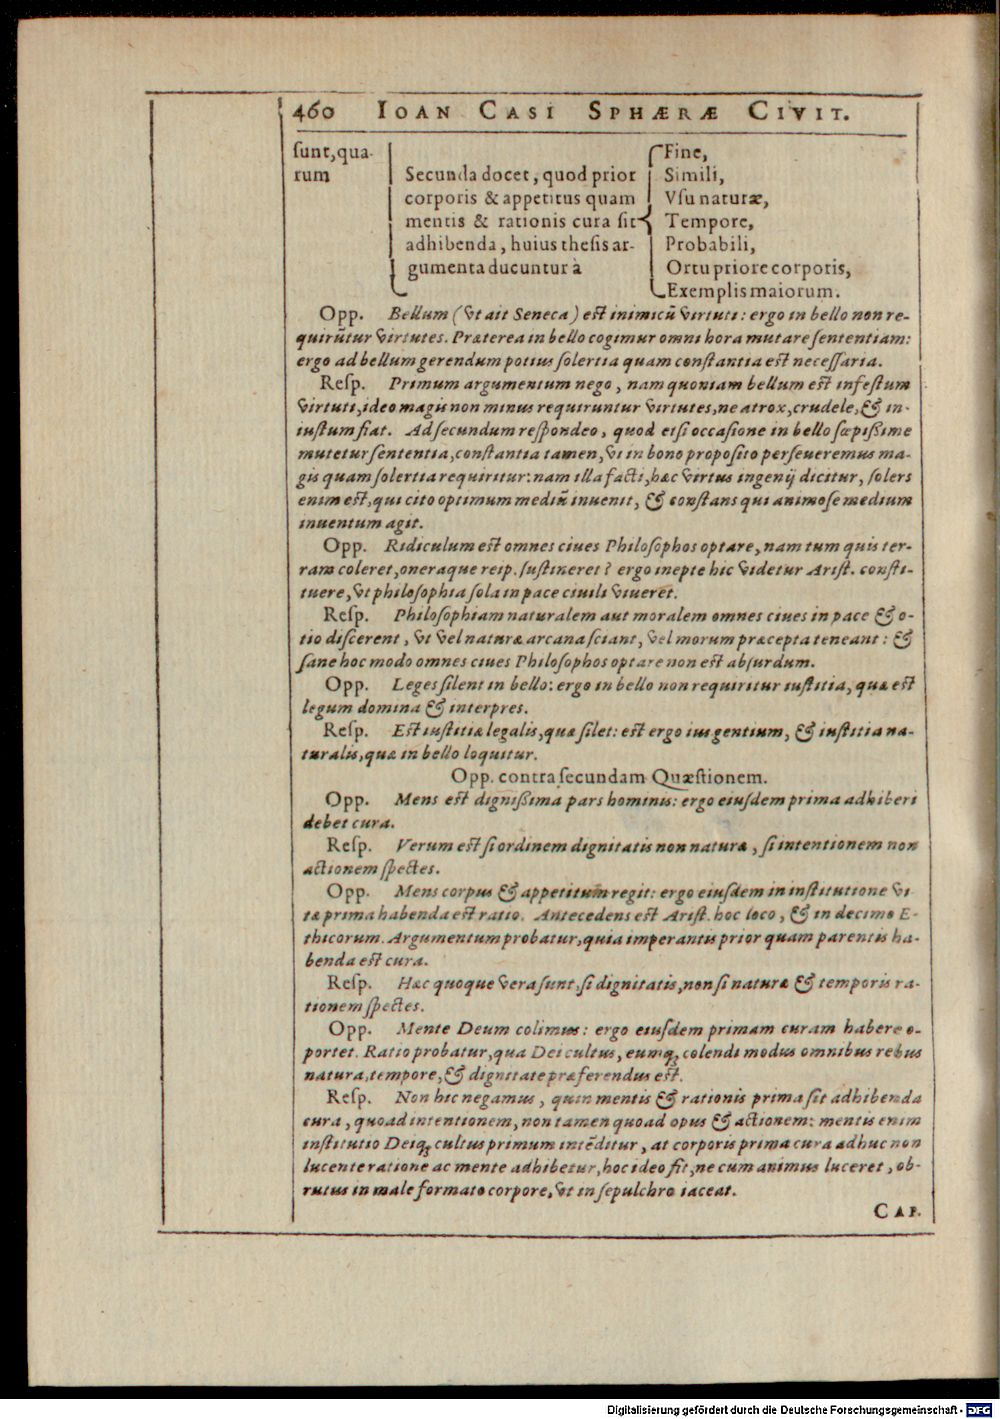 460 IOAN CASI SPHÆRÆ CIVIT.
sunt, qua-
rum
Secunda docet, quod prior
corporis & appetitus quam
mentis & rationis cura sit
adhibenda, huius thesis ar-
gumenta ducuntur à
Fine,
Simili,
Vsu naturæ,
Tempore,
Probabili,
Ortu priore corporis,
Exemplis maiorum.
Opp. Bellum (vt ait Seneca) est inimicũ virtuti: ergo in bello non re-
quirũtur virtutes. Præterea in bello cogimur omni hora mutare sententiam:
ergo ad bellum gerendum potius solertia quam constantia est necessaria.
Resp. Primum argumentum nego, nam quoniam bellum est infestum
virtuti, ideo magis non minus requiruntur virtutes, ne atrox, crudele, & in-
iustum fiat. Ad secundum respondeo, quod etsi occasione in bello sæpissime
mutetur sententia, constantia tamen, vt in bono proposito perseueremus ma-
gis quam solertia requiritur: nam illa facti, hæc virtus ingenij dicitur, solers
enim est, qui cito optimum mediũ inuenit, & constans qui animose medium
inuentum agit.
Opp. Ridiculum est omnes ciues Philosophos optare, nam tum quis ter-
ram coleret, oneraque reip. sustineret? ergo inepte hic videtur Arist. consti-
tuere, vt philosophia sola in pace ciuili viueret.
Resp. Philosophiam naturalem aut moralem omnes ciues in pace & o-
tio discerent, vt vel naturæ arcana sciant, vel morum præcepta teneant: &
sane hoc modo omnes ciues Philosophos optare non est absurdum.
Opp. Leges silent in bello: ergo in bello non requiritur iustitia, quæ est
legum domina & interpres.
Resp. Est iustitia legalis, quæ silet: est ergo ius gentium, & iustitia na-
turalis, quæ in bello loquitur.
Opp. contra secundam Quæstionem.
Opp. Mens est dignissima pars hominis: ergo eiusdem prima adhiberi
debet cura.
Resp. Verum est si ordinem dignitatis non naturæ, si intentionem non
actionem spectes.
Opp. Mens corpus & appetitum regit: ergo eiusdem in institutione vi
tæ prima habenda est ratio. Antecedens est Arist. hoc loco, & in decimo E-
thicorum. Argumentum probatur, quia imperantis prior quam parentis ha-
benda est cura.
Resp. Hæc quoque vera sunt, si dignitatis, non si naturæ & temporis ra-
tionem spectes.
Opp. Mente Deum colimus: ergo eiusdem primam curam habere o-
portet. Ratio probatur, qua Dei cultus, eumq; colendi modus omnibus rebus
natura, tempore, & dignitate præferendus est.
Resp. Non hic negamus, quin mentis & rationis prima sit adhibenda
cura, quoad intentionem, non tamen quoad opus & actionem: mentis enim
institutio Deiq; cultus primum intẽditur, at corporis prima cura adhuc non
lucente ratione ac mente adhibetur, hoc ideo fit, ne cum animus luceret, ob-
rutus in male formato corpore, vt in sepulchro iaceat.
CAP.
Digitalisierung gefördert durch die Deutsche Forschungsgemeinschaft - DFG